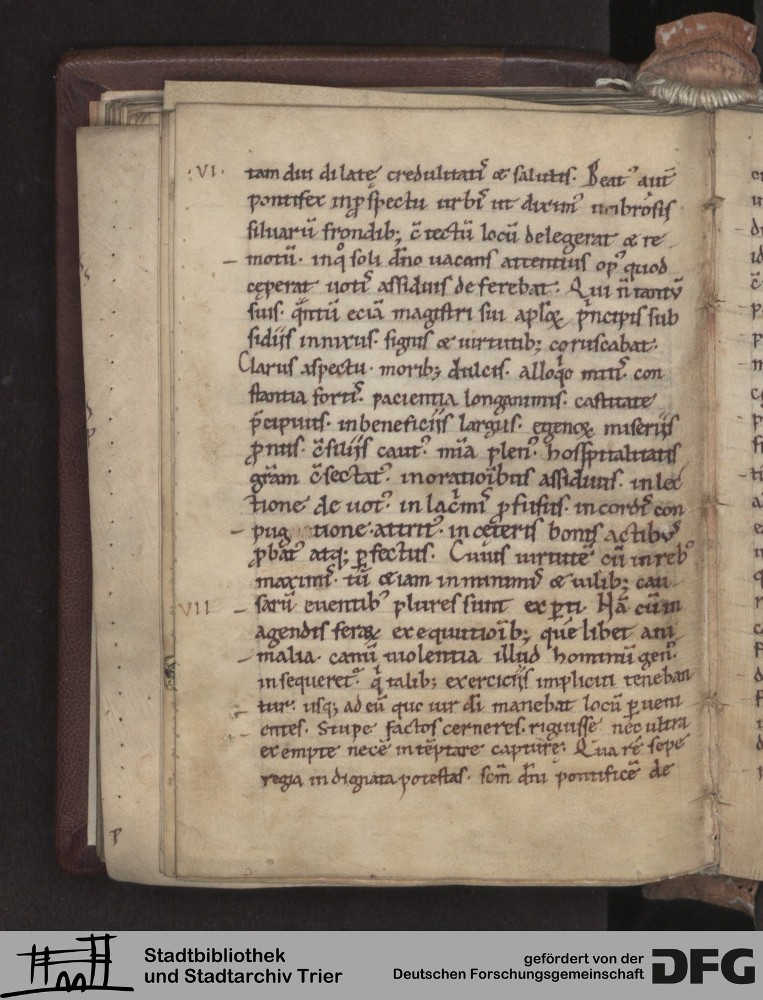 ·VI· tam diu dilatę credulitatis & salutis. Beat᷒ aut̄
pontifex in p̱spectu urbis ut diximus umbrosis
siluarū frondib; c̄tectū locū delegerat & re
motū. in q̊ soli dn̄o uacans attentius op᷒ quod
cęperat uotis assiduis deferebat. Qui n̄ tantū
suis. quantū eciā magistri sui aplōꝝ p̄ncipis sub
sidiis innixus. signis & uirtutib; coruscabat.
Clarus aspectu. morib; dulcis. alloq̊o mitis. con
stantia fortis. pacientia longanimis. castitate
p̄cipuus. in beneficiis largus. egenoꝝ miseriis
ꝓnus. c̄siliis caut᷒. mīa plen᷒. hospitalitatis
grām c̄sectat᷒. in oratioībus assiduus. in lec
tione deuot᷒. in lac̄mis ꝓfusus. in cordis con
pug tione attrit᷒. in cęteris bonis actibus
ꝓbat᷒ atq; ꝑfectus. Cuius uirtutē cū in reb᷒
maximis. tū &iam in minimis & uilib; cau
VII sarū euentib᷒ plures sunt exꝑti. Nā cū in
agendis feraꝝ exequutioīb; quelibet ani
malia. canū uiolentia illud hominū gen᷒.
insequeret᷒. q̇ talib; exerciciis impliciti teneban
tur: usq; ad eū quo uir dī manebat locū ꝑueni
entes. Stupefactos cerneres. riguisse nec ultra
exempte necē intēptare capture. Qua rē sepe
regia indignata potestas. scm̄ dn̄i pontificē de
Stadtbibliothek
und Stadtarchiv Trier
gefördert von der
Deutschen Forschungsgemeinschaft
DFG